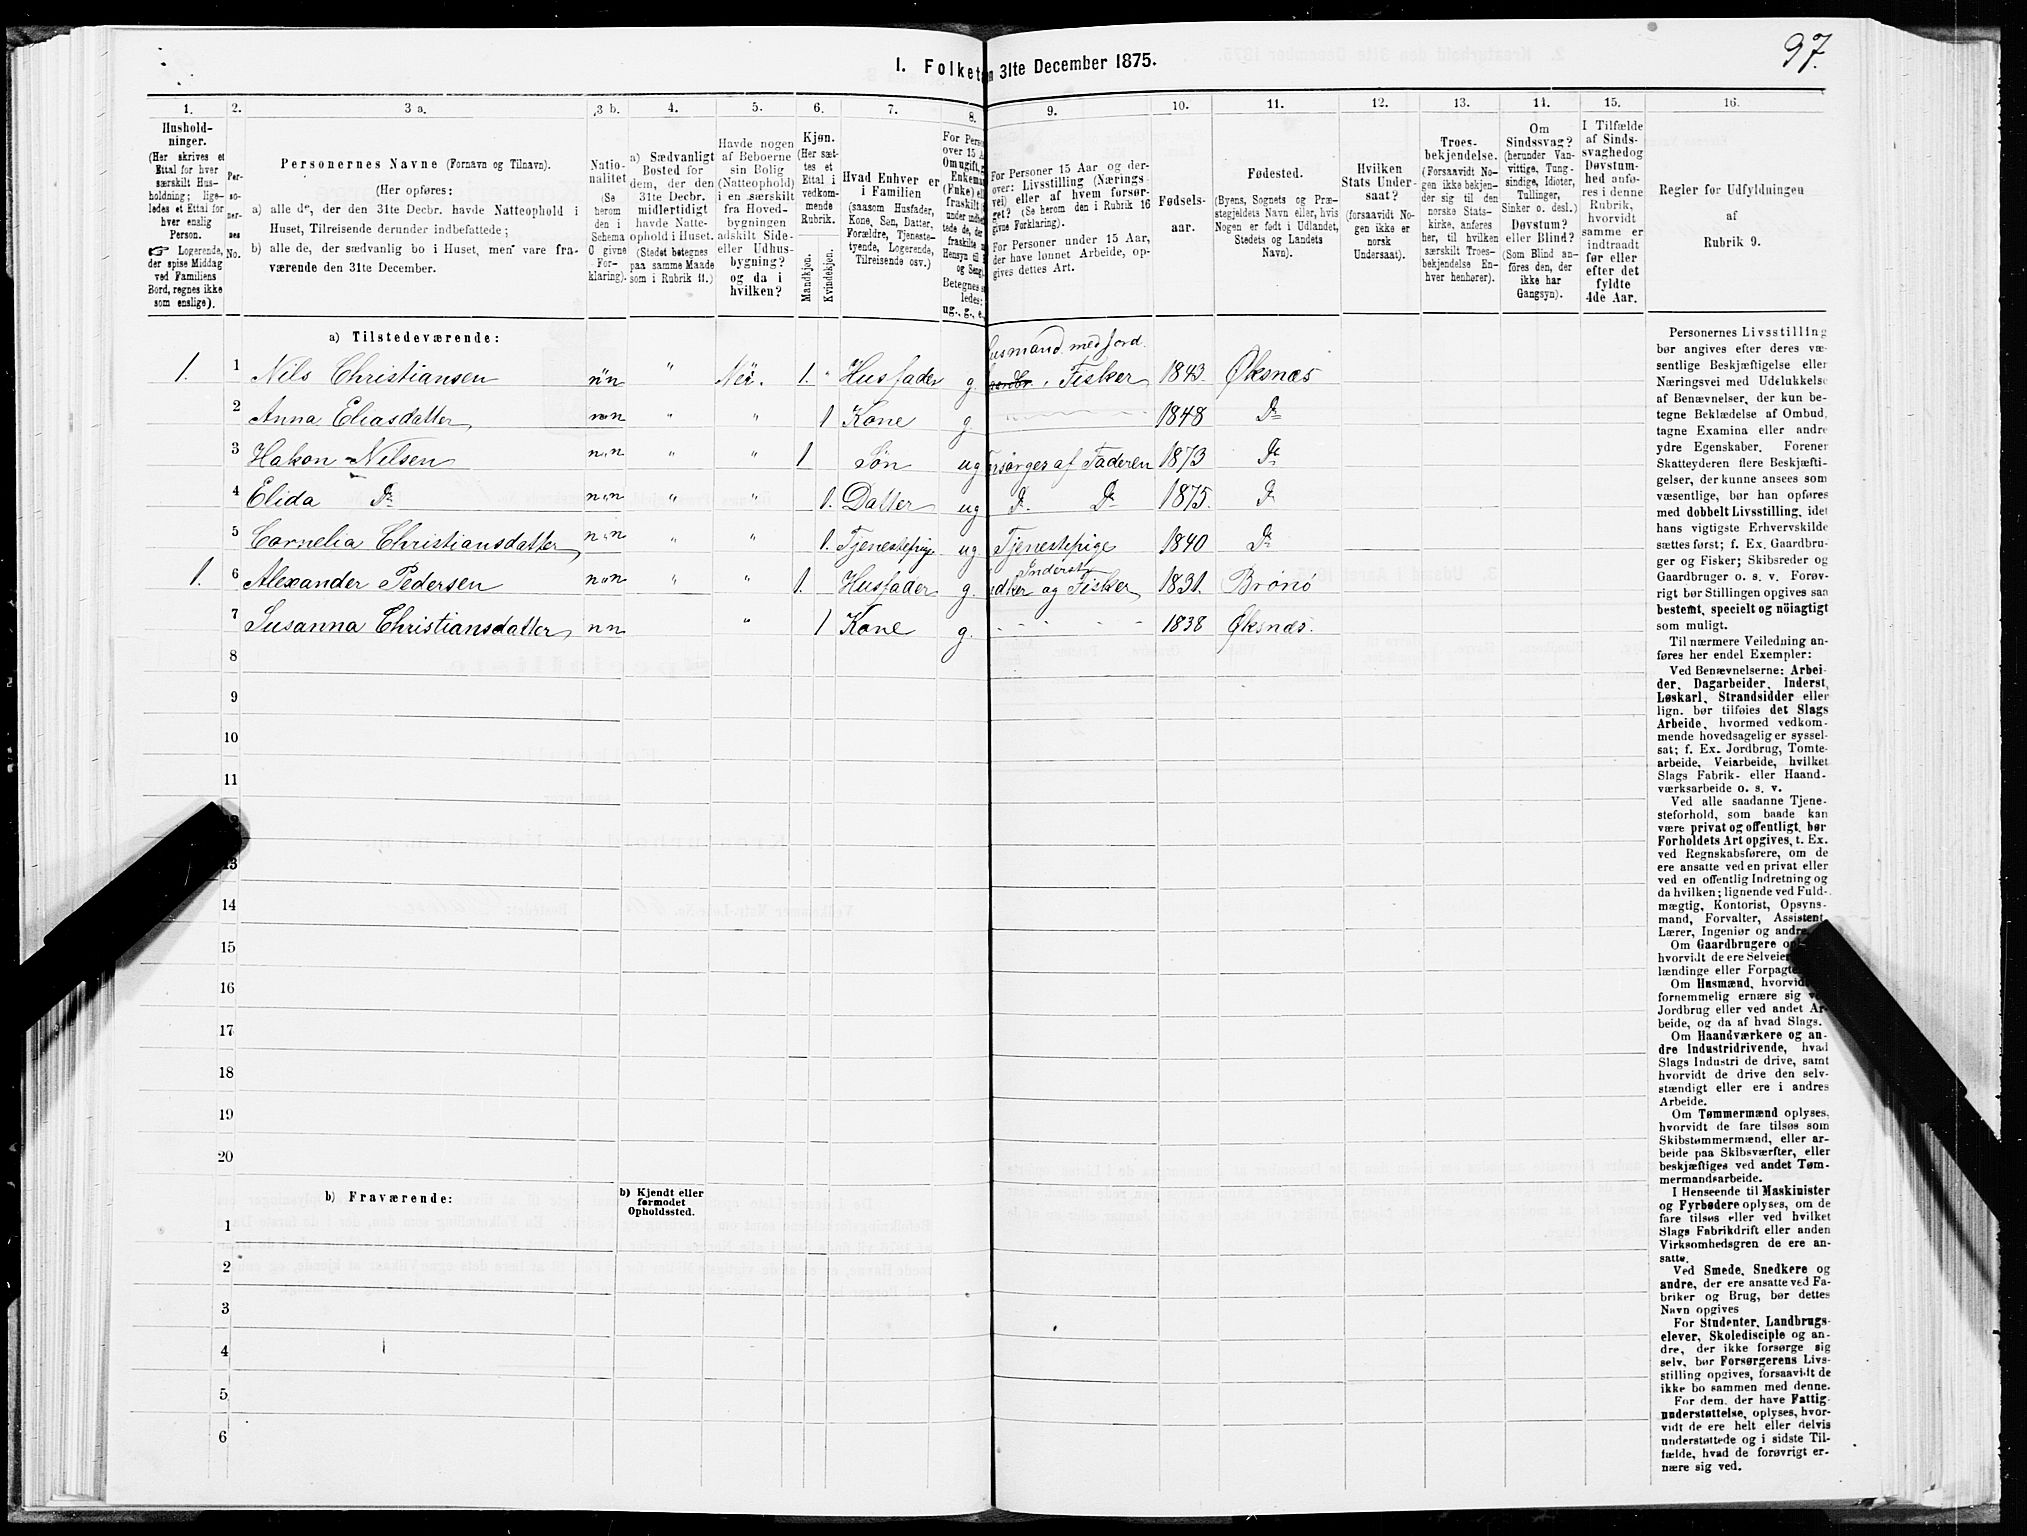 97.
I. Folketa n 31te December 1875.
1. 2. 3 a. 3 b. 4. 5. 6. 7. 8. 9. 10. 11. 12. 13. 14. 15. 16.
Hushold-
ninger.
(Her skrives et
Ettal for hver
særskilt Hus-
holdning; lige-
ledes et Ettal for
hver enslig
Person.
☞ Logerende,
der spise Middag
ved Familiens
Bord, regnes ikke
som enslige).
Per-
so-
ner-
nes
No.
Personernes Navne (Fornavn og Tilnavn).
(Her opføres:
a) alle de, der den 31te Decbr. havde Natteophold i
Huset, Tilreisende derunder indbefattede;
b) alle de, der sædvanlig bo i Huset, men vare fra-
værende den 31te December.
Natio-
nalitet
(Se
herom
den i
Schema
6 givne
For-
klaring).
a) Sædvanligt
Bosted for
dem, der den
31te Decbr.
midlertidigt
havde Natte-
ophold i Huset.
(Stedet betegnes
paa samme Maade
som i Rubrik 11.)
Havde nogen
af Beboerne
sin Bolig
(Natteophold)
i en særskilt
fra Hoved-
bygningen
adskilt Side-
eller Udhus-
bygning?
og da i
hvilken?
Kjøn.
(Her sæt-
tes et
Ettal i
vedkom-
mende
Rubrik.
Mandkjøn.
Kvindekjøn.
Hvad Enhver er
i Familien
(saasom Husfader,
Kone, Søn, Datter,
Forældre, Tjeneste-
tyende, Logerende,
Tilreisende osv.)
For Pers
over 15 A
Om ugift, g
Enkema
(Fnke) el
fraskilt
under
tede de, der
fraskilte
Hensyn til
og Seng
Betegnes s
ledes:
ug., g., e.,
For Personer 15 Aar og der-
over: Livsstilling (Nærings-
vei) eller af hvem forsør-
get? (Se herom den i Rubrik 16
givne Forklaring).
For Personer under 15 Aar,
der have lønnet Arbeide, op-
gives dettes Art.
Fødsels-
aar.
Fødested.
(Byens, Sognets og Præ-
stegjeldets Navn eller, hvis
Nogen er født i Udlandet,
Stedets og Landets
Navn).
Hvilken
Stats Under-
saat?
(forsaavidt No-
gen ikke er
norsk
Undersaat).
Troes-
bekjendelse.
(Forsaavidt No-
gen ikke bekjen-
der sig til den
norske Stats-
kirke, anføres
her, til hvilken
særskilt Troes-
bekjendelse En-
hver henhører).
Om
Sindssvag?
(herunder Van-
vittige, Tung-
sindige, Idioter,
Tullinger,
Sinker o. desl.)
Døvstum?
eller Blind?
(Som Blind an-
føres den, der
ikke har
Gangsyn).
I Tilfælde
af Sinds-
svaghed og
Døvstum-
hed anfø-
res i denne
Rubrik,
hvorvidt
samme er
indtraadt
før eller
efter det
fyldte
4de Aar.
Regler for Udfyldningen
af
Rubrik 9.
a) Tilstedeværende:
usmand med Jord
1. 1 Nils Christiansen n"n " Nei. 1. " Husfader g. Fisker 1843. Øksnæs
2 Anna Eliasdatter n"n " " 1 Kone g. 1848 Do
3 Hakon Nilsen n"n " " 1 Søn ug orsørges af Faderen 1873 Do
4 Elida Do n"n " " 1. Datter ug Do. Do 1875. Do
5 Cornelia Christiansdatter n"n " " 1. Tjenestepige ug Tjenestepige 1840 Do
Inderst
1. 6 Alexander Pedersen n"n " " 1. Husfader g. dker og Fisker 1831. Brønø
7 Susanna Christiansdatter nn " 1 Kone g. 1838 Øksnæs.
8
9
10
11
13
14
15
16
17
18
19
20
b) Fraværende:
b) Kjendt eller
formodet
Opholdssted.
1
2
3
4
5
6
Personernes Livsstilling
bør angives efter deres væ-
sentlige Beskjæftigelse eller
Næringsvei med Udelukkelse
af Benævnelser, der kun be-
tegne Beklædelse af Ombud,
tagne Examina eller andre
ydre Egenskaber. Forener
Skatteyderen flere Beskjæfti-
gelser, der kunne ansees som
væsentlige, bør han opføres
med dobbelt Livsstilling, idet
hans vigtigste Erhvervskilde
sættes først; f. Ex. Gaardbru-
ger og Fisker; Skibsreder og
Gaardbruger o. s. v. Forøv-
rigt bør Stillingen opgives saa
bestemt, specielt og nöiagtigt
som muligt.
Til nærmere Veiledning an-
føres her endel Exempler:
Ved Benævnelserne: Arbei-
der, Dagarbeider, Inderst,
Løskarl, Strandsidder eller
lign. bør tilføies det Slags
Arbeide, hvormed vedkom-
mende hovedsagelig er syssel-
sat; f. Ex. Jordbrug, Tomte-
arbeide, Veiarbeide, hvilket
Slags Fabrik- eller Haand-
værksarbeide o. s. v.
Ved alle saadanne Tjene-
steforhold, som baade kan
være privat og offentligt, bør
Forholdets Art opgives, t. Ex.
ved Regnskabsførere, om de
ere ansatte ved en privat eller
ved en offentlig Indretning og
da hvilken; lignende ved Fuld-
mægtig, Kontorist, Opsyns-
mand, Forvalter, Assistent,
Lærer, Ingeniør og andre.
Om Gaardbrugere
hvorvidt de ere Selveier
lændinge eller Forpagte
Om Husmænd, hvorvidt
fornemmelig ernære sig
Jordbrug eller ved andet Ar-
beide, og da af hvad Slags.
Om Haandværkere og an-
dre Industridrivende, hvad
Slags Industri de drive, samt
hvorvidt de drive den selv-
stændigt eller ere i andres
Arbeide.
Om Tømmermænd oplyses,
hvorvidt de fare tilsøs som
Skibstømmermænd, eller ar-
beide paa Skibsværfter, eller
beskjæftiges ved andet Tøm-
mermandsarbeide.
I Henseende til Maskinister
og Fyrbødere oplyses, om de
fare tilsøs eller ved hvilket
Slags Fabrikdrift eller anden
Virksomhedsgren de ere an-
satte.
Ved Smede, Snedkere og
andre, der ere ansatte ved Fa-
briker og Brug, bør dettes
Navn opgives
For Studenter, Landbrugs-
elever, Skoledisciple og an-
dre, der ikke forsørge sig
selv, bør Forsørgerens Livs-
stilling opgives, forsaavidt de
ikke bo sammen med denne.
For dem, der have Fattig-
understøttelse, oplyses, hvor-
vidt de ere helt eller delvis
understøttede og i sidste Til-
fælde, hvad de forøvrigt er-
nære sig ved.